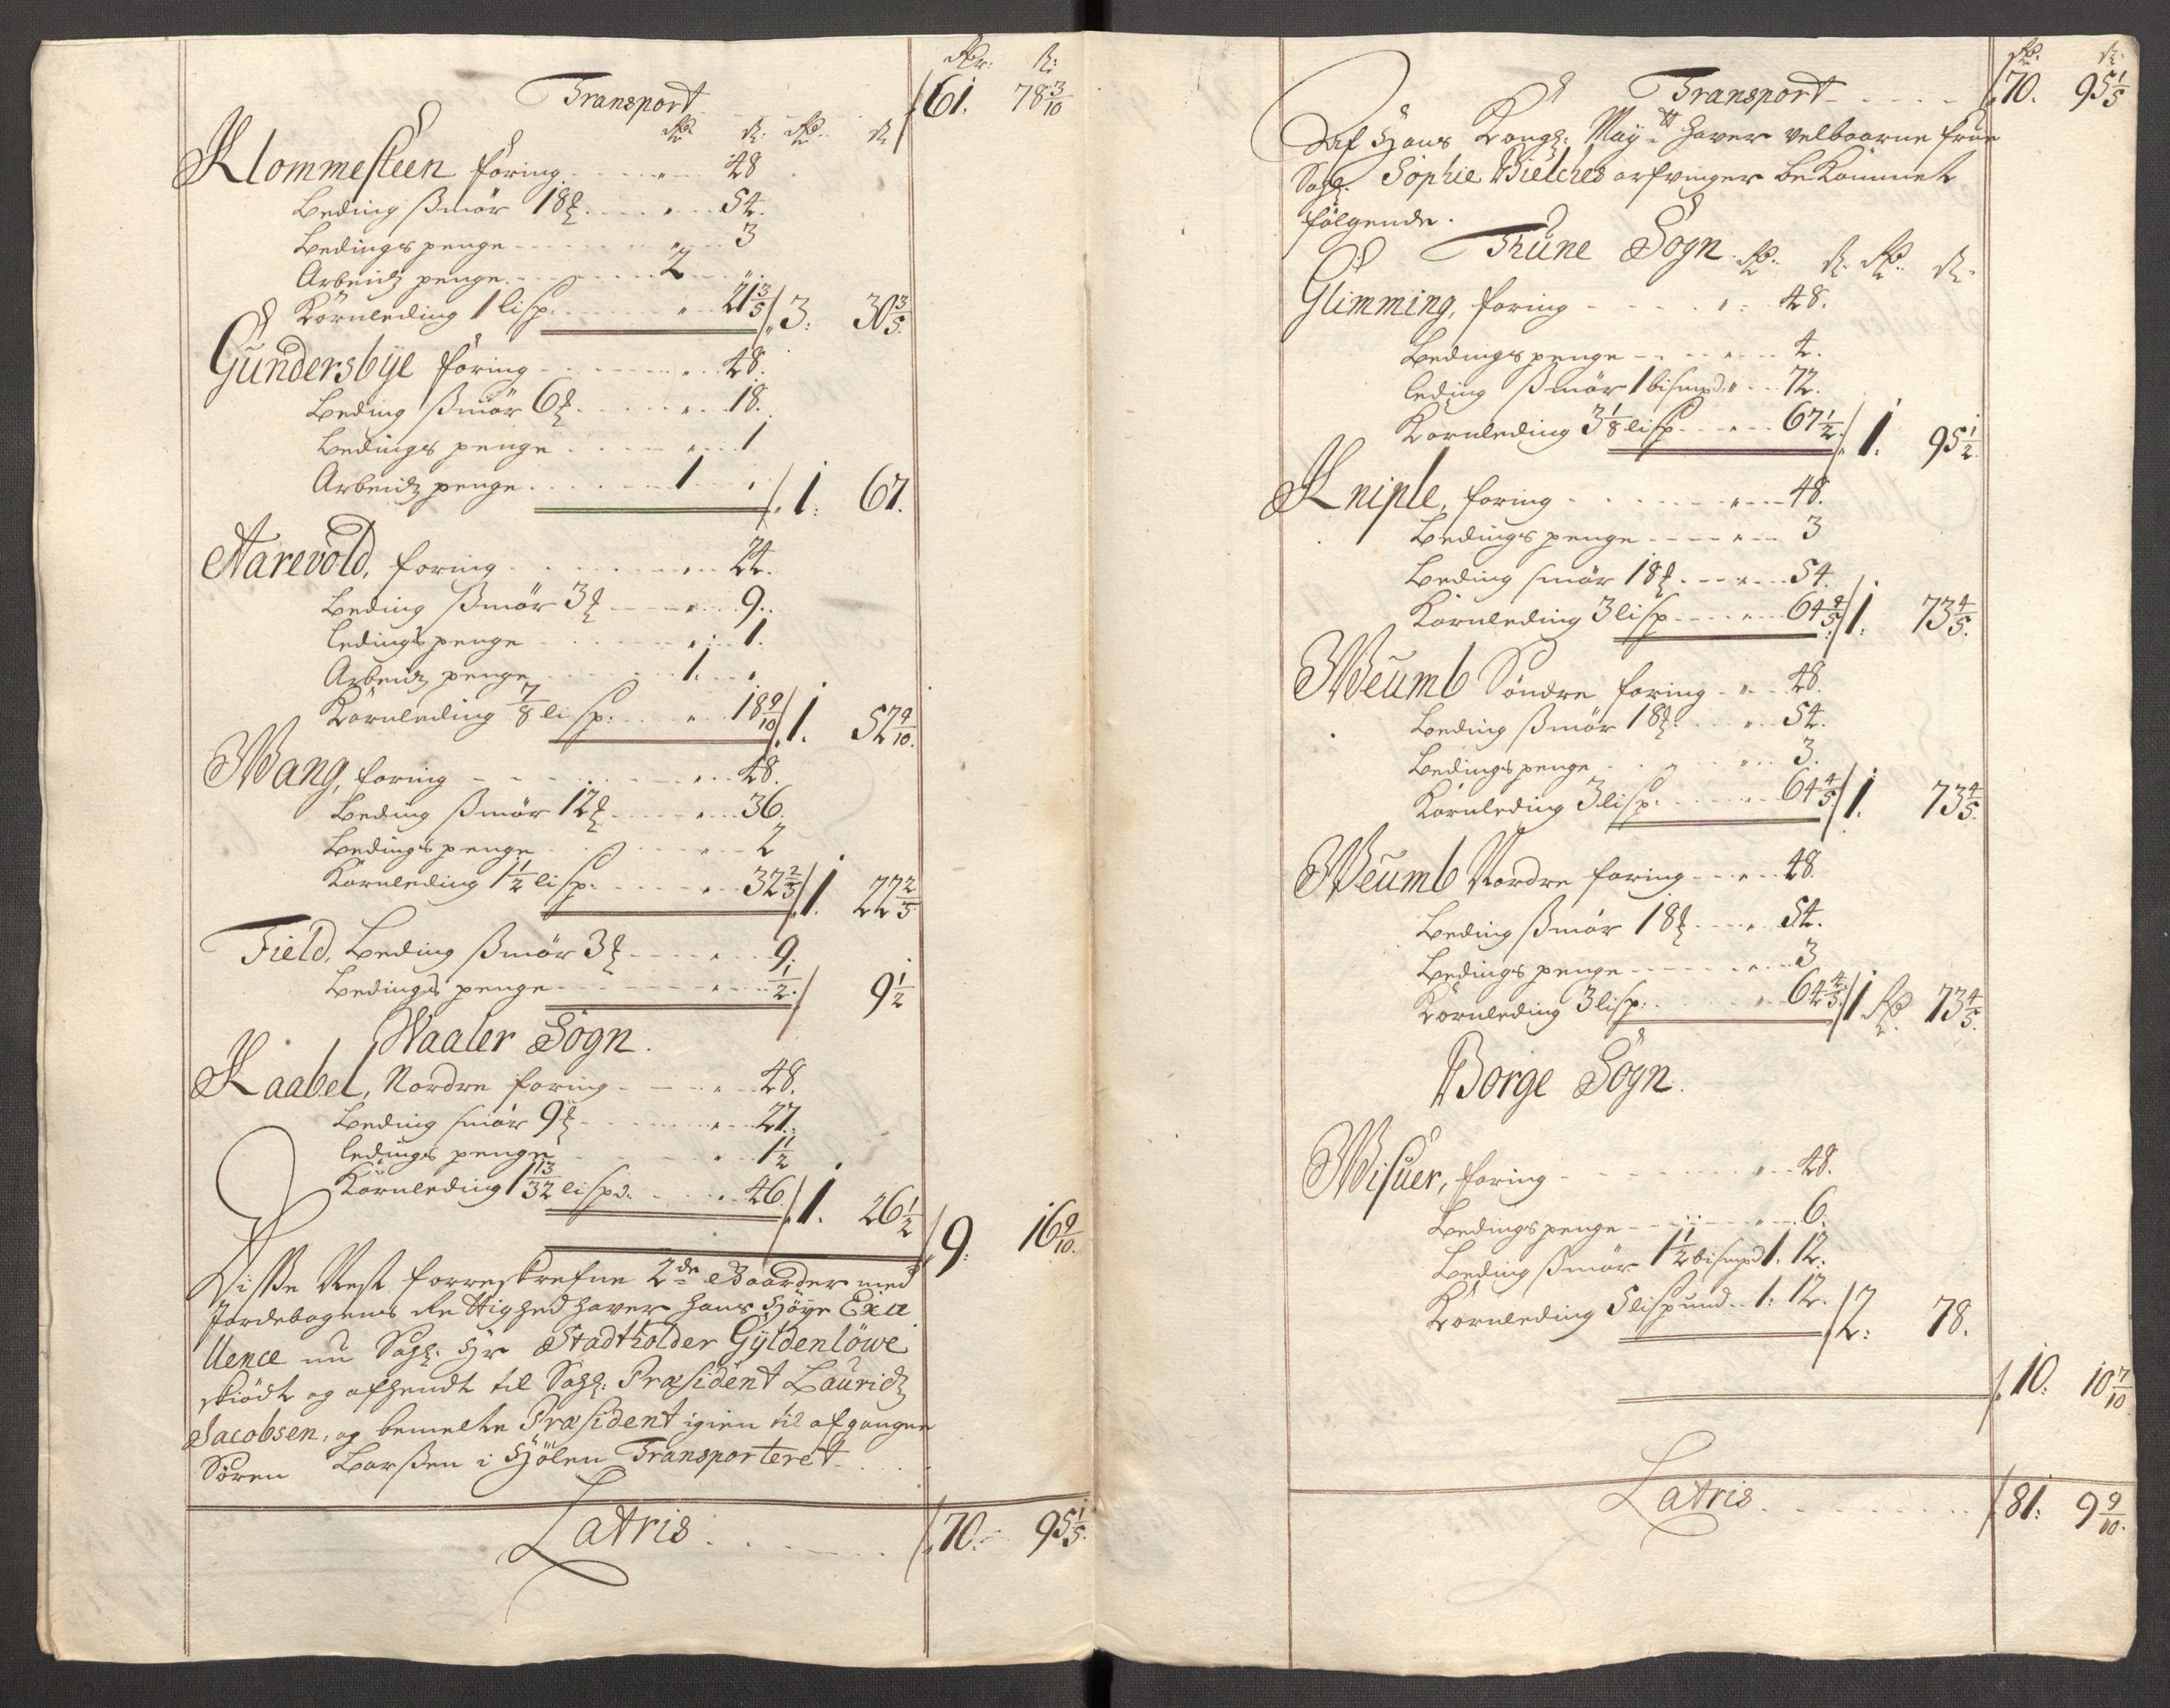 Rdr: s:
Transport 61. 78 3/10
Rd s. Rd s
Klommesteen foring 48
Leding Smør 18 ℔ 54.
Ledings penge 3
Arbeidz penge 2
Kornleding 1 lisp: 21 3/5 3: 30 3/5.
Gundersbÿe foring 48.
Leding Smør 6 ℔ 18.
Ledings penge 1
Arbeidz penge 1 1: 67.
Aarevold, foring 24.
Leding Smør 3 ℔ 9.
ledings penge 1.
Arbeidz penge 1.
Kornleding 7/8 lisp: 18 9/10 1. 52 9/10.
Wang, foring 48.
Leding Smør 12 ℔ 36.
Ledings penge 2
Kornleding 1 1/2 lisp: 32 2/5 1. 22 2/5
Field, Leding Smør 3 ℔ 9.
Ledings penge 1/2. 9 1/2
Waaler Sogn.
Kaabel, Nordre foring 48.
Leding smør 9 ℔ 27.
ledings penge 1 1/2
Kornleding 1 13/32 lispd: 46 1. 26 1/2 9: 16 9/10.
Disse Nest forreskrefne 2de Gaarder med
Jordebogens Rettighed haver hans Høÿe Exce
llence nu Sahl: Hr Stadtholder Gÿldenlöwe
skiødt og afhendt til Sahl: Præsident Lauridz
Jacobsen, og bemelte Præsident igien til afgangne
Søren Larsen i Hølen Transporteret
Latris 70. 95 1/5.
Rd. s.
Transport 70. 95 1/5
Af Hans Kongl: Maÿtt haver velbaarne frue
Sahl. Sophie Bielches arfvinger bekommet
følgende.
Thune Sogn. Rd. s. Rd. s.
Glimming, foring 48.
Ledings penge 4.
leding Smør 1 bismpd: 72.
Kornleding 3 1/8 lisp 67 1/2. 1. 95 1/2.
Kniple, foring 48.
Ledings penge 3
Leding smør 18 ℔ 54.
Kornleding 3 lisp 64 4/5. 1. 73 4/5.
Weumb Søndre foring 48.
Leding Smør 18 ℔ 54.
Ledings penge 3.
Kornleding 3 lisp: 64 4/5 1. 73 4/5.
Weumb Nordre foring 48.
Leding Smør 18 ℔ 54.
Ledings penge 3
Kornleding 3 lisp: 64 4/5. 1 Rd. 73 4/5.
Borge Sogn.
Wisuer, foring 48.
Ledings penge 6.
Leding Smør 1 1/2 bismpd 1. 12.
Kornleding 5 lispund 1: 12. 2: 78.
10: 10 7/10
Latris 81: 9 9/10.